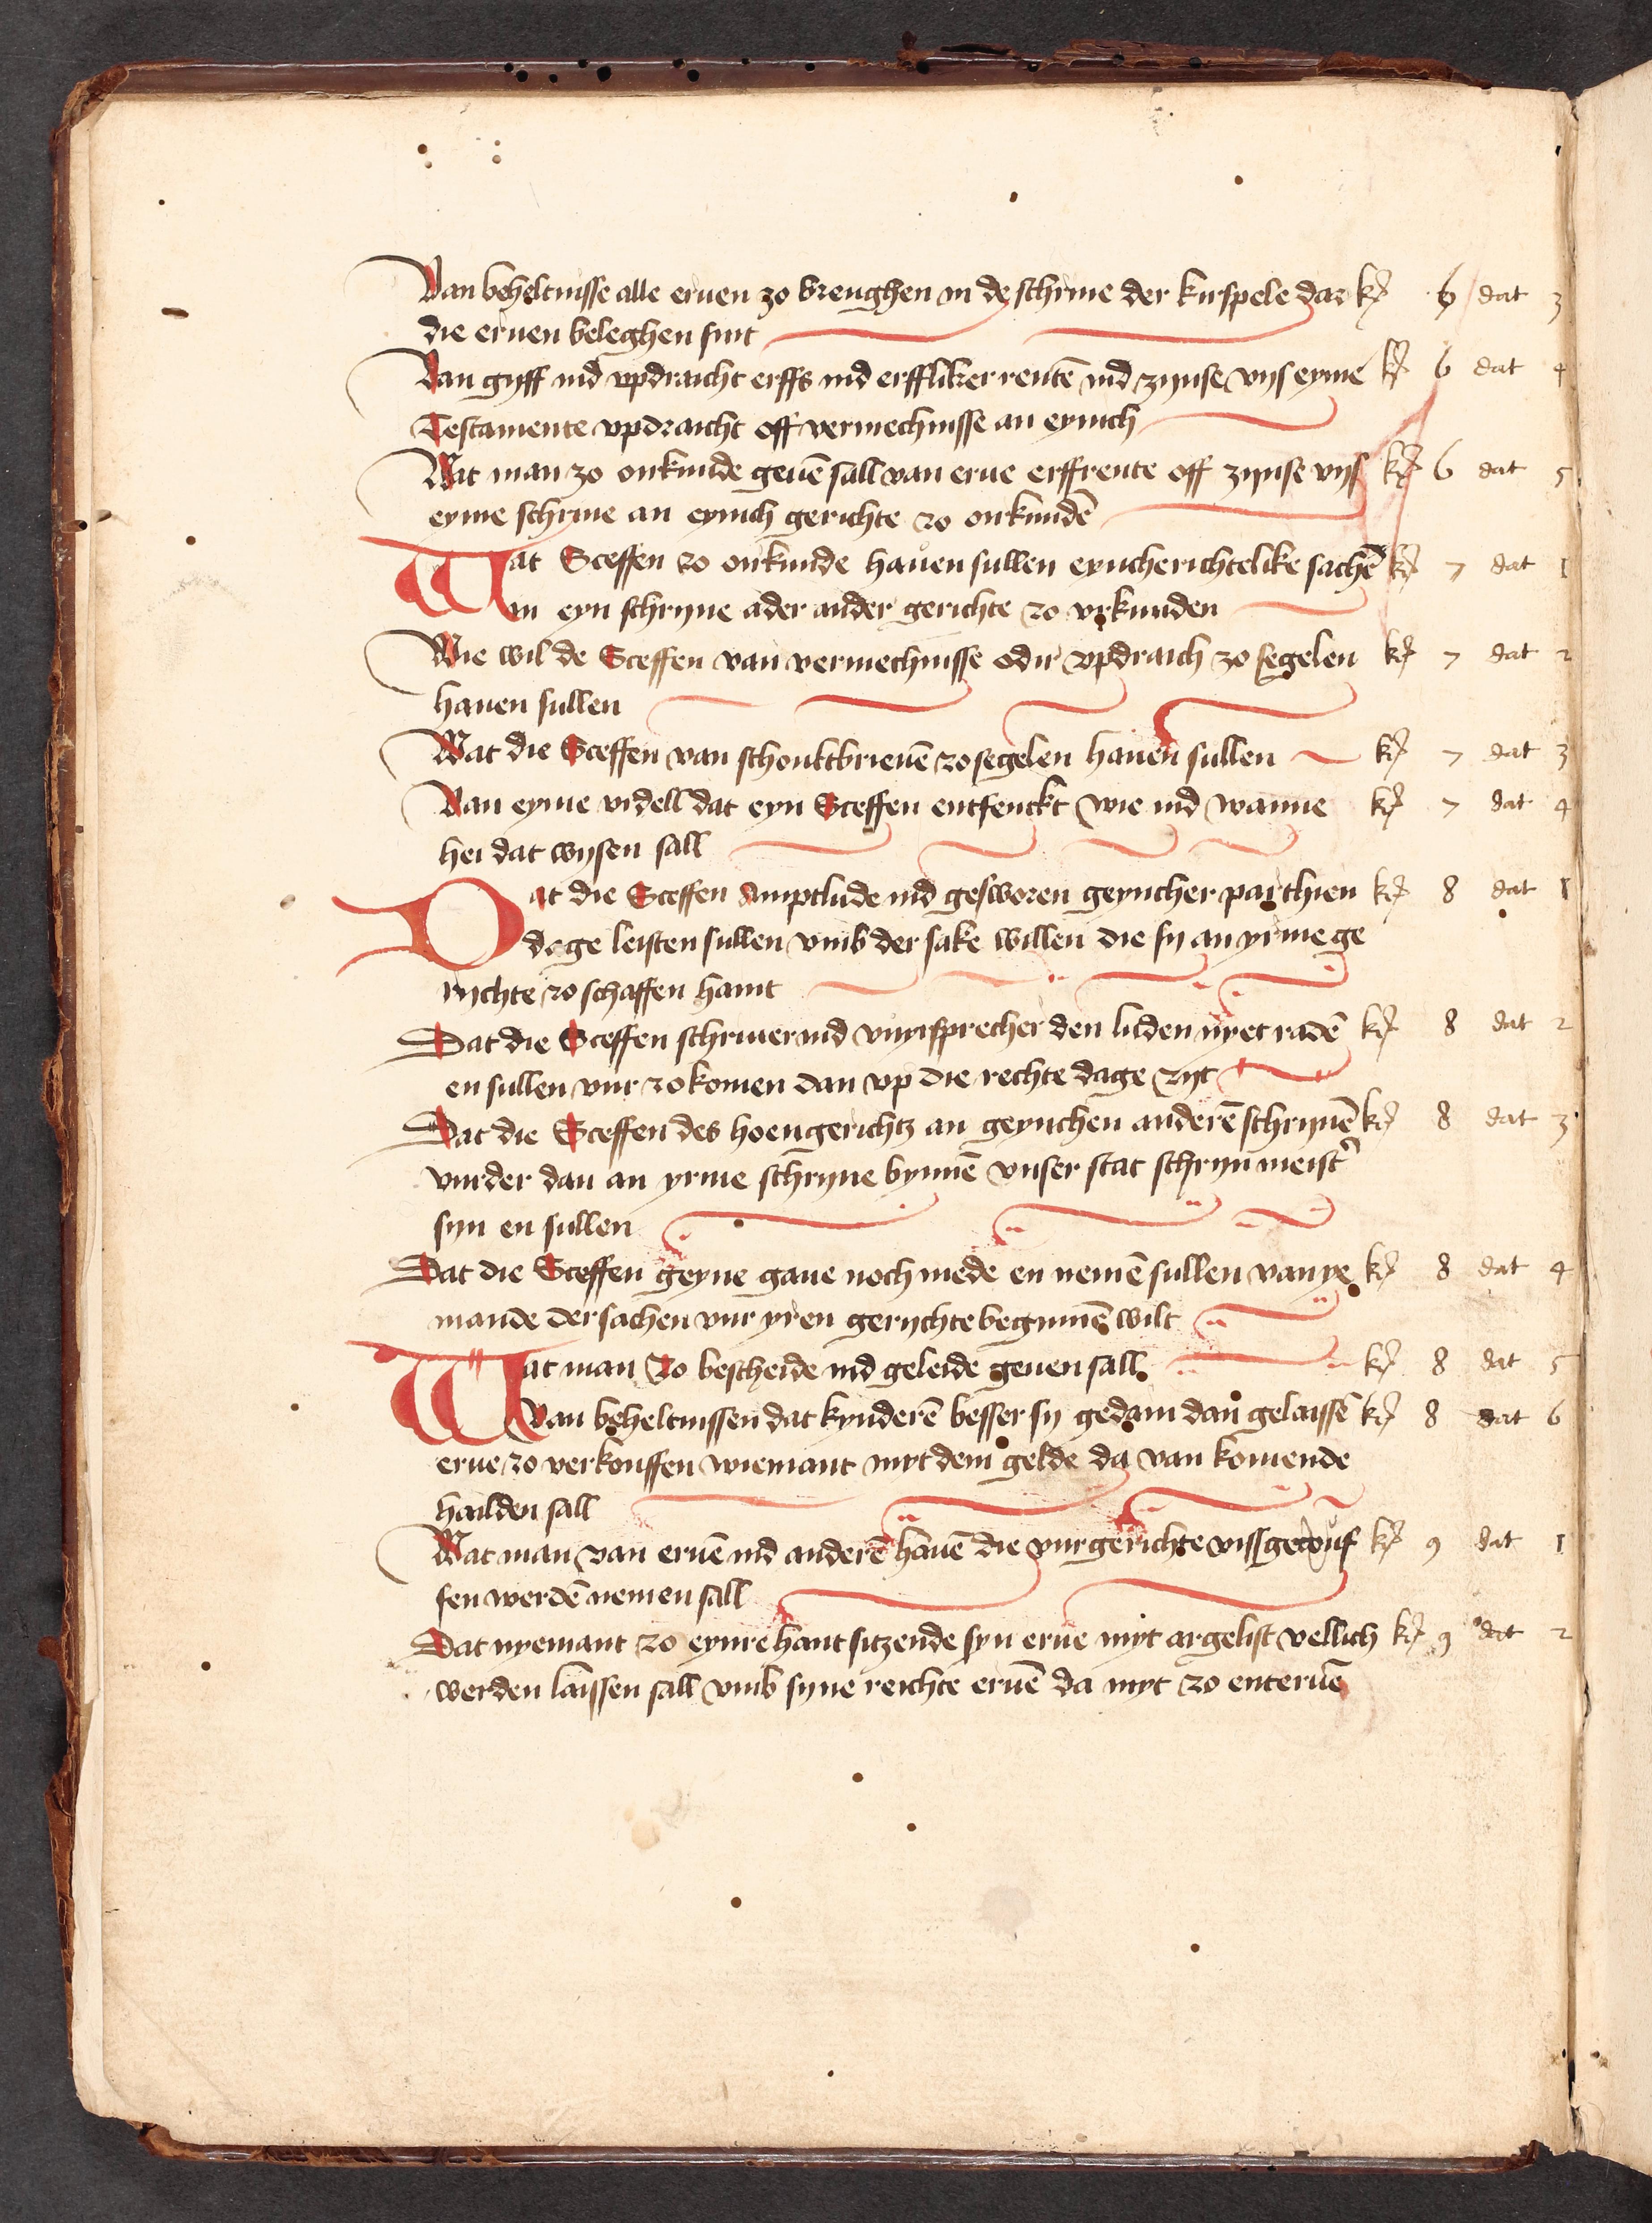 Van beheltnisse alle eruen zo brenghen in de schrine der kirspele dae kz 6 dat 3
die eruen beleghen sint
Van gyff ind vpdraicht erffs ind erffliker rentē ind zynse vys eyme kz 6 dat 4
Testamente vpdraicht off vermechnisse an eynich
Wat man zo onkunde geuē sall van erue erffrente off zynse vys kz 6 dat 5
eyme schryne an eynich gerichte zo onkundē
Wat Sceffen zo onkunde hauen sullen eyncherichtelike sachē kz 7 dat 1
in eyn schryne ader ander gerichte zo vrkunden
Wie wil de Sceffen van vermechnisse odir vpdraich zo segelen kz 7 dat 2
hauen sullen
Wat die Sceffen van schoultbrieuē zo segelen hauen sullen kz 7 dat 3
Van eyme vrdell dat eyn Sceffen entfenckt wie ind wanne kz 7 dat 4
hei dat wysen sall
Dat die Sceffen Amptlude ind gesworen geyncher parthien kz 8 dat 1
dage leisten sullen vmb der sake willen die sy an yrme ge
rychte zo schaffen haint
Dat die Sceffen schriuer ind vuyrsprecher den luden nyet radē kz 8 dat 2
en sullen vur zo komen dan vp die rechte dage zyt
Dat die Sceffen des hoengerichtz an geynchen anderē schrynē kz 8 dat 3
vurder dan an yrme schryne bynnē vnser stat schryn meistˀ
syn en sullen
Dat die Sceffen geyne gaue noch mede en nemē sullen van ye kz 8 dat 4
mande der sachen vur yren gerychte begynnē wilt
Wat man zo bescheide ind geleide geuen sall kz 8 dat 5
Van beheltnissen dat kynderē besser sy gedain dan gelaissē kz 8 dat 6
erue zo verkouffen wie mant myt dem gelde da van komende
hailden sall
Wat man van eruē ind anderē hauē die vur gerichte vissgewuf kz 9 dat 1
fen werdē nemen sall
Dat nyemant zo eynre hant sitzende syn erue myt argelist vellich kz 9 dat 2
werden laissen sall vmb syne reichte eruē da myt zo enteruē